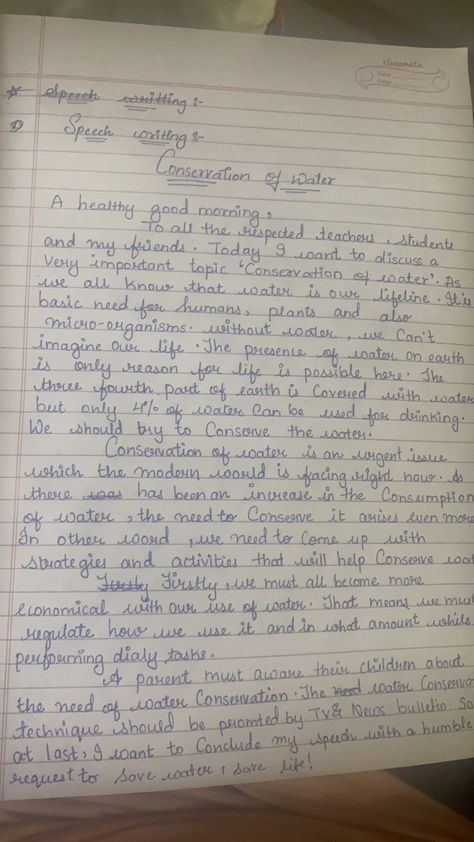 classmate
Date
Page
Speech writting :-
Speech writing :-
Conservation of Water
A healthy good morning,
To all the respected teachers, students
and my friends. Today I want to discuss a
very important topic 'Conservation of water'. As
we all know that water is our lifeline. It's
basic need for humans, plants and also
micro-organisms. without water, we can't
imagine our life. The presence of water on earth
is only reason for life is possible here. The
three fourth part of earth is covered with water
but only 4% of water can be used for drinking.
We should try to conserve the water.
Conservation of water is an urgent issue
which the modern world is facing right now. As
there was has been an increase in the consumption
of water, the need to conserve it arises even more
In other word, we need to come up with
strategies and activities that will help conserve wat
Firstly Firstly, we must all become more
economical with our use of water. That means we mus
regulate how we use it and in what amount while
performing dialy tasks.
A parent must aware their children about
the need of water conservation. The need water conserva
technique should be promted by TV & News bulletin. So
at last, I want to conclude my speech with a humble
request to save water, save life!